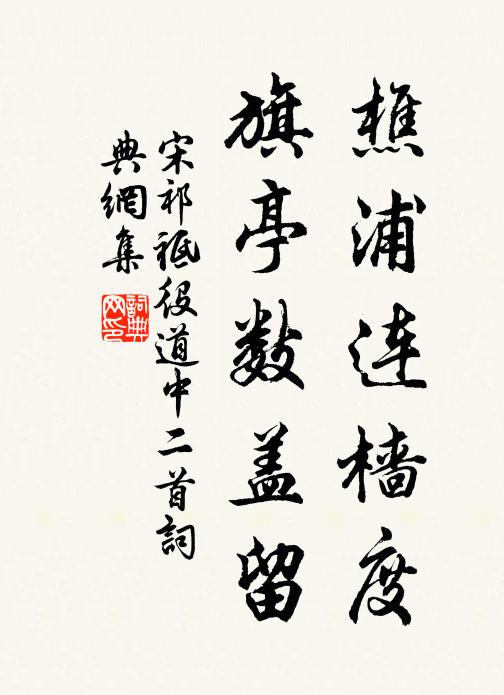 樵浦连樯度
旗亭数盖留
宋祁祗役道中二首詞
典網集
詞典网印